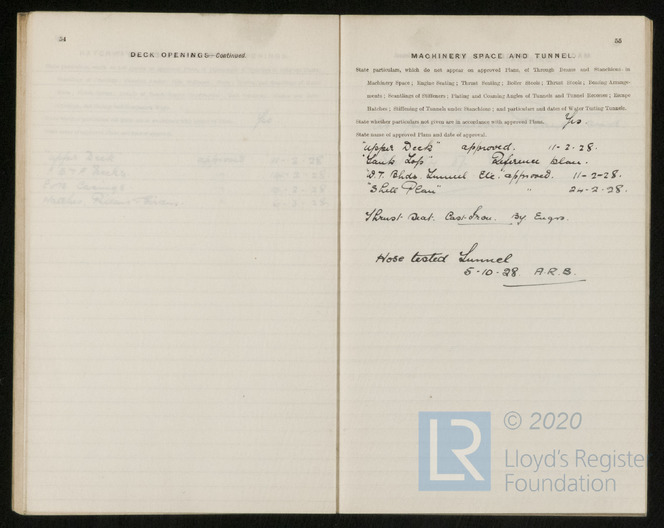 54
DECK OPENINGS—Continued.
55
MACHINERY SPACE AND TUNNEL.
State particulars, which do not appear on approved Plans, of Through Beams and Stanchions in
Machinery Space; Engine Seating; Thrust Seating; Boiler Stools; Thrust Stools; Bracing Arrange-
ments; Scantlings of Stiffeners; Plating and Coaming Angles of Tunnels and Tunnel Recesses; Escape
Hatches; Stiffening of Tunnels under Stanchions; and particulars and dates of Water Testing Tunnels.
State whether particulars not given are in accordance with approved Plans. Yes
State name of approved Plan and date of approval.
"Upper Deck" approved. 11-2-28.
"Tank Top" Reference plan.
"W.T. Bhds. Tunnel Etc." approved. 11-2-28.
"Shell Plan" " 24-2-28.
Thrust Seat. Cast Iron. By Engrs.
Hose tested Tunnel
5-10-28 A.R.B.
© 2020
LR
Lloyd's Register
Foundation